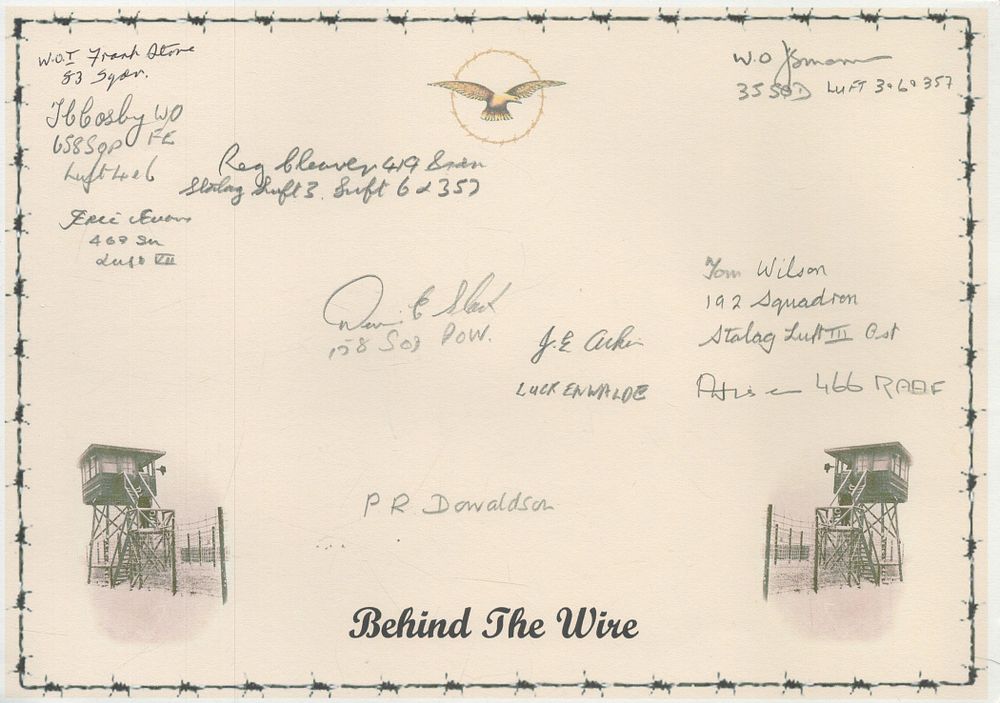 W.O.I Frank Stone
83 Sqdn.
W.O
35 SQD LUFT 3.6.& 357
Cosby WO
658 Sqd FE
Luft 4 & 6
Reg Cleaver 419 Sqdn
Stalag Luft 3. Luft 6 & 357
Eric Evans
467 Sn
Luft VII
Tom Wilson
192 Squadron
Stalag Luft III Ost
E Slack
158 Sqd POW.
J.E.
LUCKENWALDE
466 RAAF
P R Donaldson
Behind The Wire